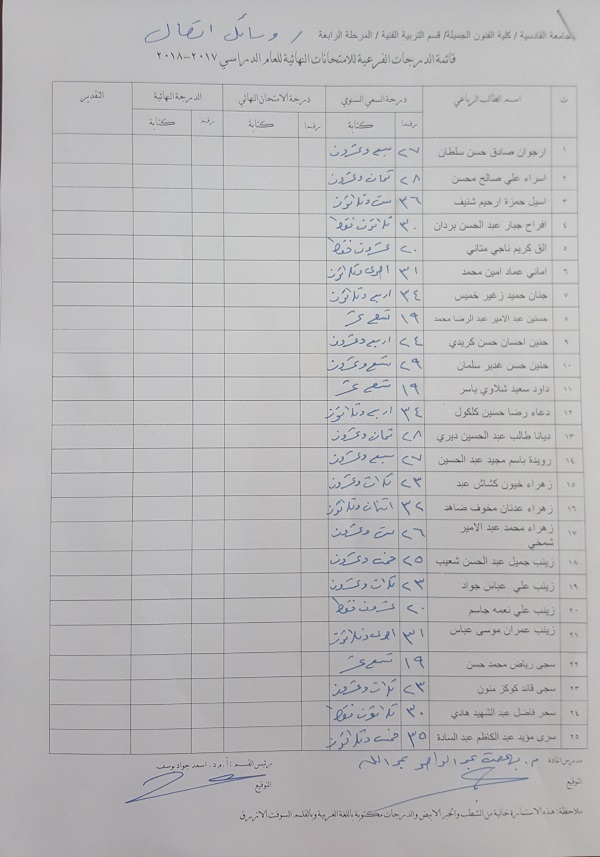 جامعة القادسية / كلية الفنون الجميلة/ قسم التربية الفنية / المرحلة الرابعة / وسائل اتصال
قائمة الدرجات الفرعية للامتحانات النهائية للعام الدراسي ٢٠١٧-٢٠١٨
ت اسم الطالب الرباعي درجة السعي السنوي درجة الامتحان النهائي الدرجة النهائية التقدير
رقما كتابة رقما كتابة رقما كتابة
١ ارجوان صادق حسن سلطان ٢٧ سبع وعشرون
٢ اسراء علي صالح محسن ٢٨ ثمان وعشرون
٣ اسيل حمزة ارحيم شنيف ٣٦ ست وثلاثون
٤ افراح جبار عبد الحسن بردان ٣٠ ثلاثون فقط
٥ الق كريم ناجي متاني ٢٠ عشرون فقط
٦ اماني عماد امين محمد ٣١ احدى وثلاثون
٧ جنان حميد زغير خميس ٣٤ اربع وثلاثون
٨ حسنين عبد الامير عبد الرضا محمد ١٩ تسع عشر
٩ حنين احسان حسن كريدي ٢٤ اربع وعشرون
١٠ حنين حسن غدير سلمان ٢٩ تسع وعشرون
١١ داود سعيد شلاوي ياسر ١٩ تسع عشر
١٢ دعاء رضا حسين كلكول ٣٤ اربع وثلاثون
١٣ ديانا طالب عبد الحسين ديري ٢٨ ثمان وعشرون
١٤ رويدة باسم مجيد عبد الحسين ٢٧ سبع وعشرون
١٥ زهراء خيون كشاش عبد ٢٣ ثلاث وعشرون
١٦ زهراء عدنان مخوف ضاهد ٣٢ اثنان وثلاثون
١٧ زهراء محمد عبد الامير شمخي ٢٦ ست وعشرون
١٨ زينب جميل عبد الحسن شعيب ٢٥ خمس وعشرون
١٩ زينب علي عباس جواد ٢٣ ثلاث وعشرون
٢٠ زينب علي نعمه جاسم ٢٠ عشرون فقط
٢١ زينب عمران موسى عباس ٣١ احدى وثلاثون
٢٢ سجى رياض محمد حسن ١٩ تسع عشر
٢٣ سجى قائد كوكز منون ٢٣ ثلاث وعشرون
٢٤ سحر فاضل عبد الشهيد هادي ٣٠ ثلاثون فقط
٢٥ سرى مؤيد عبد الكاظم عبد السادة ٣٥ خمس وثلاثون
مدرس المادة م. بهجت عبد الواحد عبد الله
رئيس القسم : أ.م.د. اسعد جواد يوسف
التوقيع
التوقيع
ملاحظة: هذه الاستمارة خالية من الشطب والحبر الابيض والدرجات مكتوبة باللغة العربية وبالقلم السوفت الازرق